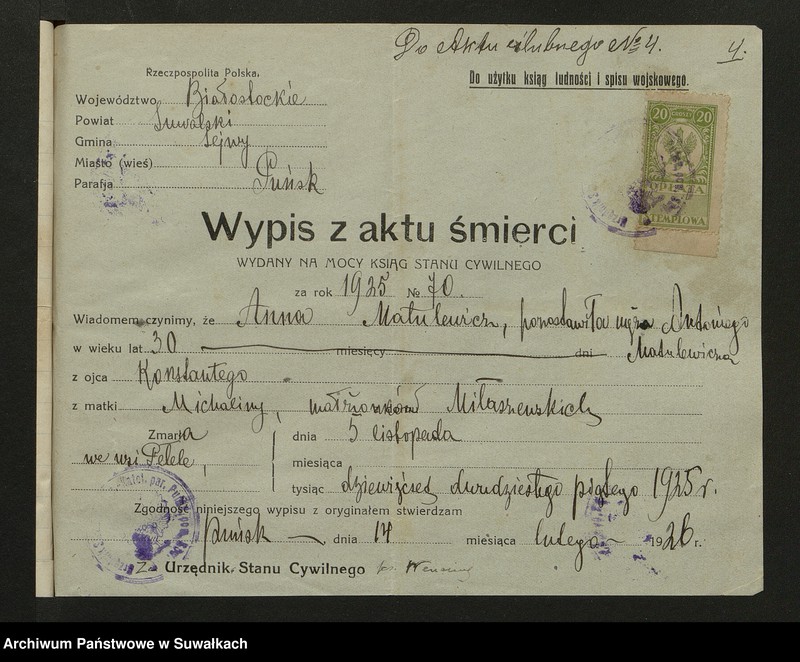 Do Aktu ślubnego № 4.
4.
Do użytku ksiąg ludności i spisu wojskowego.
Rzeczpospolita Polska.
Województwo Białostockie
Powiat Suwalski
Gmina Sejwy
Miasto (wieś)
Parafja Puńsk
20 GROSZY 20
OPŁATA
STEMPLOWA
Wypis z aktu śmierci
WYDANY NA MOCY KSIĄG STANU CYWILNEGO
za rok 1925 № 70.
Wiadomem czynimy, że Anna Matulewicz, pozostawiła męża Antoniego
w wieku lat 30 miesięcy dni Matulewicza
z ojca Konstantego
z matki Michaliny, małżonków Miłaszewskich
Zmarła dnia 5 listopada
we wsi Pełele, miesiąca
tysiąc dziewięćset dwudziestego piątego 1925 r.
Zgodność niniejszego wypisu z oryginałem stwierdzam
Puńsk dnia 14 miesiąca lutego 1926 r.
Za Urzędnik Stanu Cywilnego ks.
Archiwum Państwowe w Suwałkach